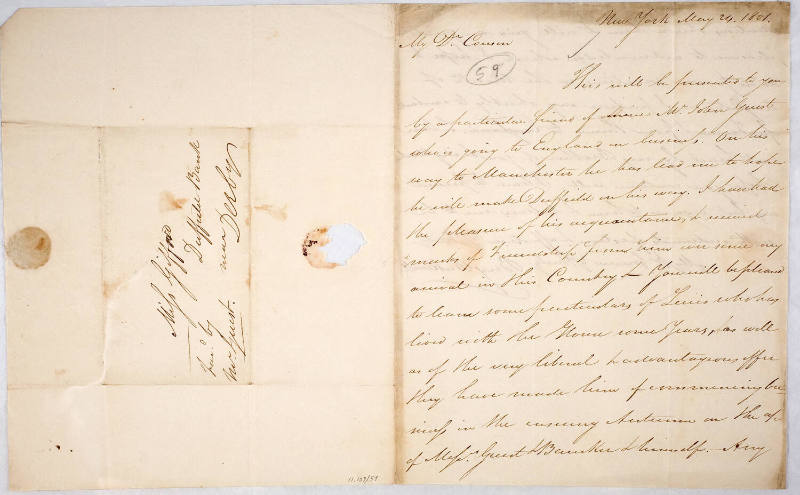 Miss Gifford
Duffield Bank
near Derby
favd. by
Mr. Guest.
11.127/59
New York May 24. 1801.
My Dr. Cousin
59
This will be presented to you
by a particular friend of mine Mr. John Guest
who is going to England on business. On his
way to Manchester he has lead me to hope
he will make Duffield in his way. I have had
the pleasure of his acquaintance, & received
marks of Friendship from him ever since my
arrival in this Country & You will be pleased
to learn some particulars of Lewis who has
lived with the House some Years, as well
as of the very liberal & advantageous offer
they have made him of commencing bu-
siness in the ensuing Autumn on the
of Messrs. Guest & & himself. Any